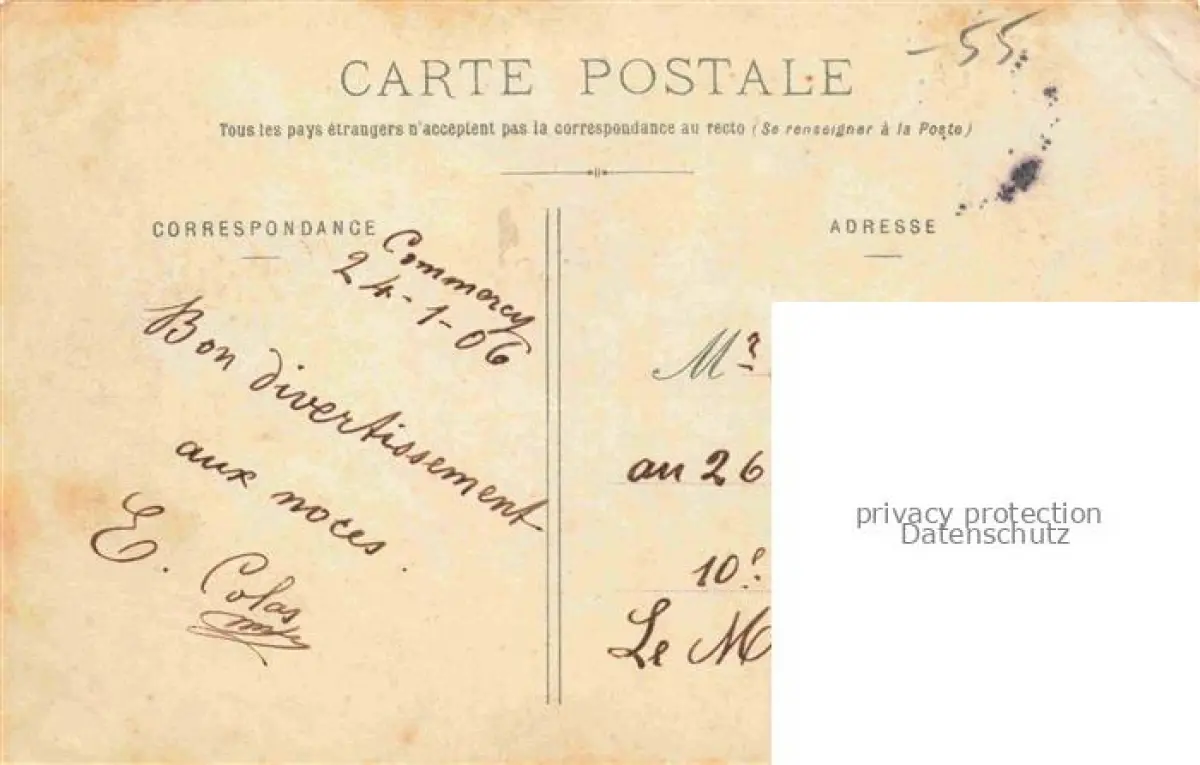 - 55
CARTE POSTALE
Tous les pays étrangers n'acceptent pas la correspondance au recto (Se renseigner à la Poste)
CORRESPONDANCE
Commercy
24-1-06
Bon divertissement
aux noces.
E. Colas
ADRESSE
Mr
au 26
10e
Le M
privacy protection
Datenschutz